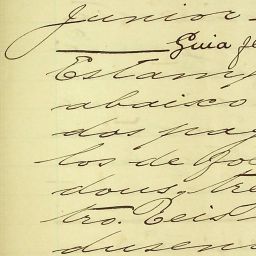 Junior
Guia
Estam
abaixo
dos pag
los de
dous, tre
tro. Reis
dusen